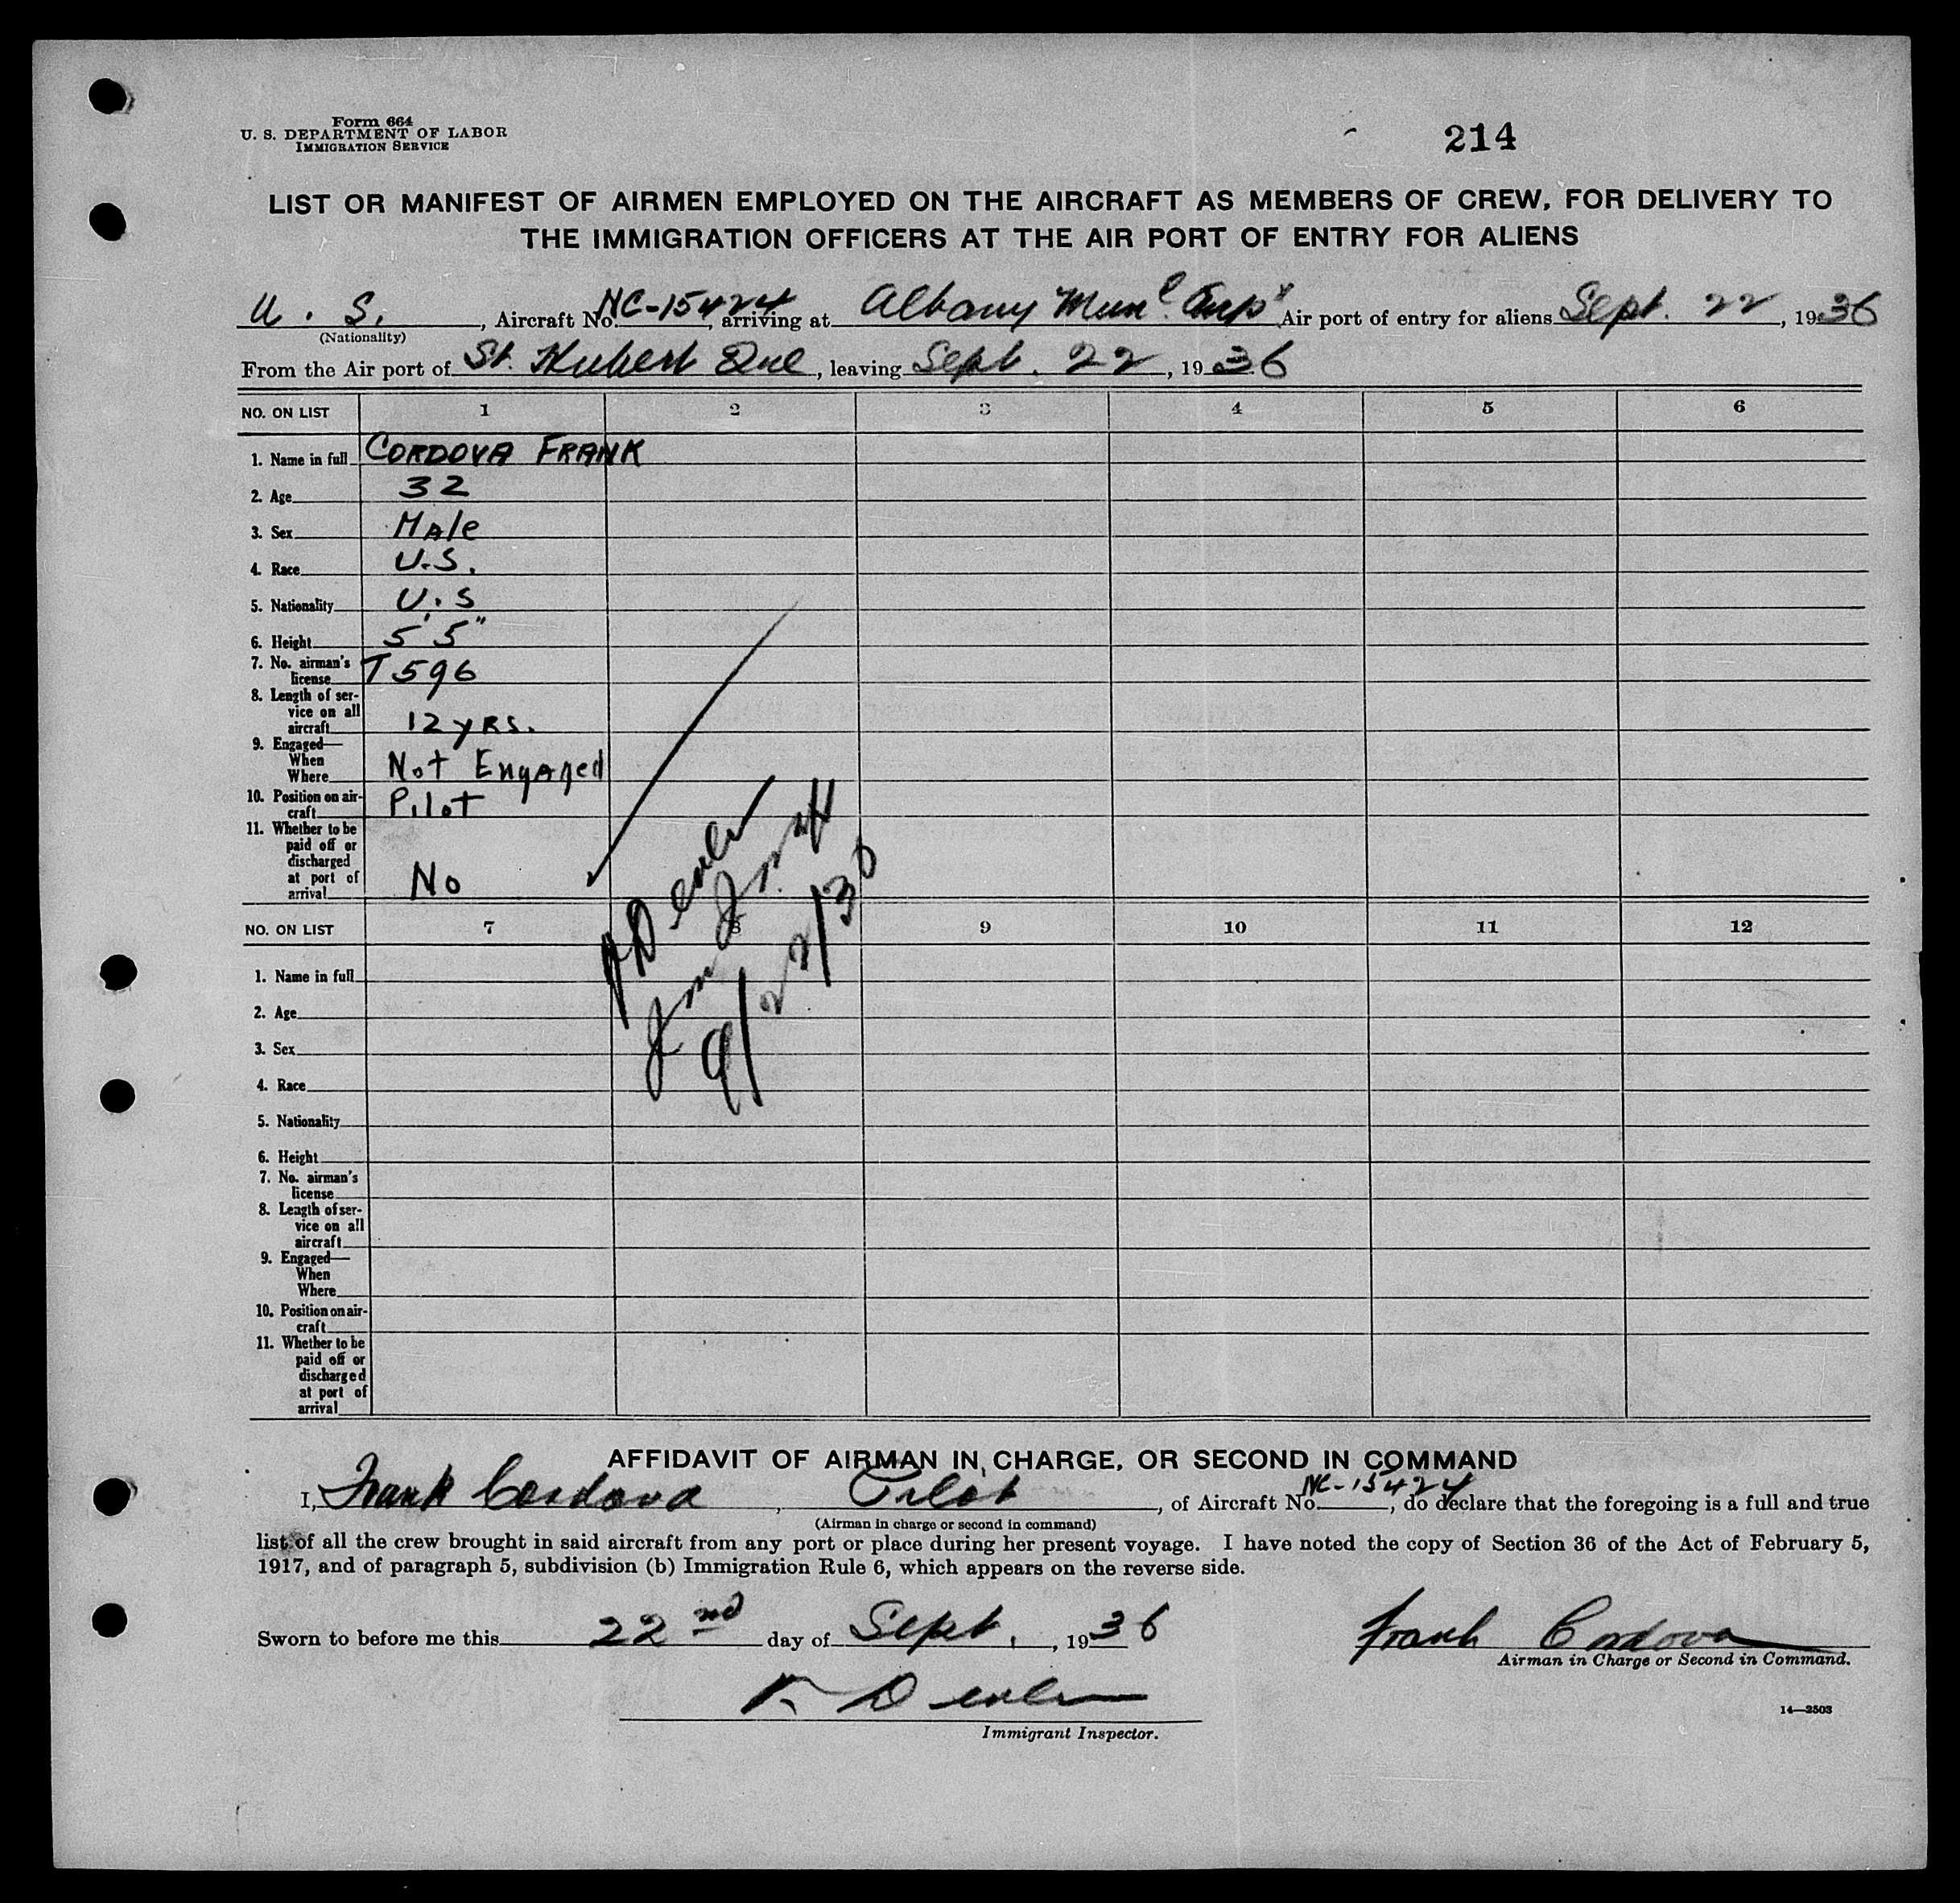 Form 664
U. S. DEPARTMENT OF LABOR
IMMIGRATION SERVICE
214
LIST OR MANIFEST OF AIRMEN EMPLOYED ON THE AIRCRAFT AS MEMBERS OF CREW, FOR DELIVERY TO
THE IMMIGRATION OFFICERS AT THE AIR PORT OF ENTRY FOR ALIENS
U. S., Aircraft No. NC-15424, arriving at Albany Munl. Air port of entry for aliens Sept. 22, 1936
(Nationality)
From the Air port of St. Hubert Que, leaving Sept. 22, 1936
NO. ON LIST 1 2 3 4 5 6
1. Name in full CORDOVA FRANK
2. Age 32
3. Sex MAle
4. Race U.S.
5. Nationality U.S
6. Height 5' 5"
7. No. airman's
license T596
8. Length of ser-
vice on all
aircraft 12 yRS.
9. Engaged—
When
Where Not EngAged
10. Position on air-
craft Pilot
11. Whether to be
paid off or
discharged
at port of
arrival No
9/22/36
NO. ON LIST 7 8 9 10 11 12
1. Name in full
2. Age
3. Sex
4. Race
5. Nationality
6. Height
7. No. airman's
license
8. Length of ser-
vice on all
aircraft
9. Engaged—
When
Where
10. Position on air-
craft
11. Whether to be
paid off or
discharged
at port of
arrival
AFFIDAVIT OF AIRMAN IN CHARGE, OR SECOND IN COMMAND
I, Frank Cordova, Pilot, of Aircraft No. NC-15424, do declare that the foregoing is a full and true
(Airman in charge or second in command)
list of all the crew brought in said aircraft from any port or place during her present voyage. I have noted the copy of Section 36 of the Act of February 5,
1917, and of paragraph 5, subdivision (b) Immigration Rule 6, which appears on the reverse side.
Sworn to before me this 22nd day of Sept., 1936
Frank Cordova
Airman in Charge or Second in Command.
Immigrant Inspector.
14—2503